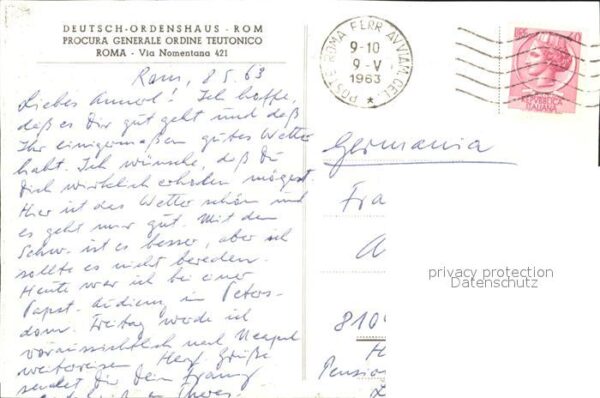 DEUTSCH-ORDENSHAUS - ROM
PROCURA GENERALE ORDINE TEUTONICO
ROMA - Via Nomentana 421
Rom, 8.5.63
Liebes Annerl! Ich hoffe,
daß es Dir gut geht und daß
Ihr einigermaßen gutes Wetter
habt. Ich wünsche, daß Du
Dich wirklich erholen mögest.
Hier ist das Wetter schön und
es geht mir gut. Mit dem
Schw. ist es besser, aber ich
sollte es nicht bereden.
Heute war ich bei einer
Papst-audienz im Peters-
dom. Freitag werde ich
voraussichtlich nach Neapel
weiterreisen. Herzl. Grüße
sendet Dir Dein Franz
POSTE ROMA FERR. AVVIAM. DEL.
9-10
9-V
1963
REPVBBLICA
ITALIANA
Germania
Fra
A
privacy protection
Datenschutz
810
H
Pension